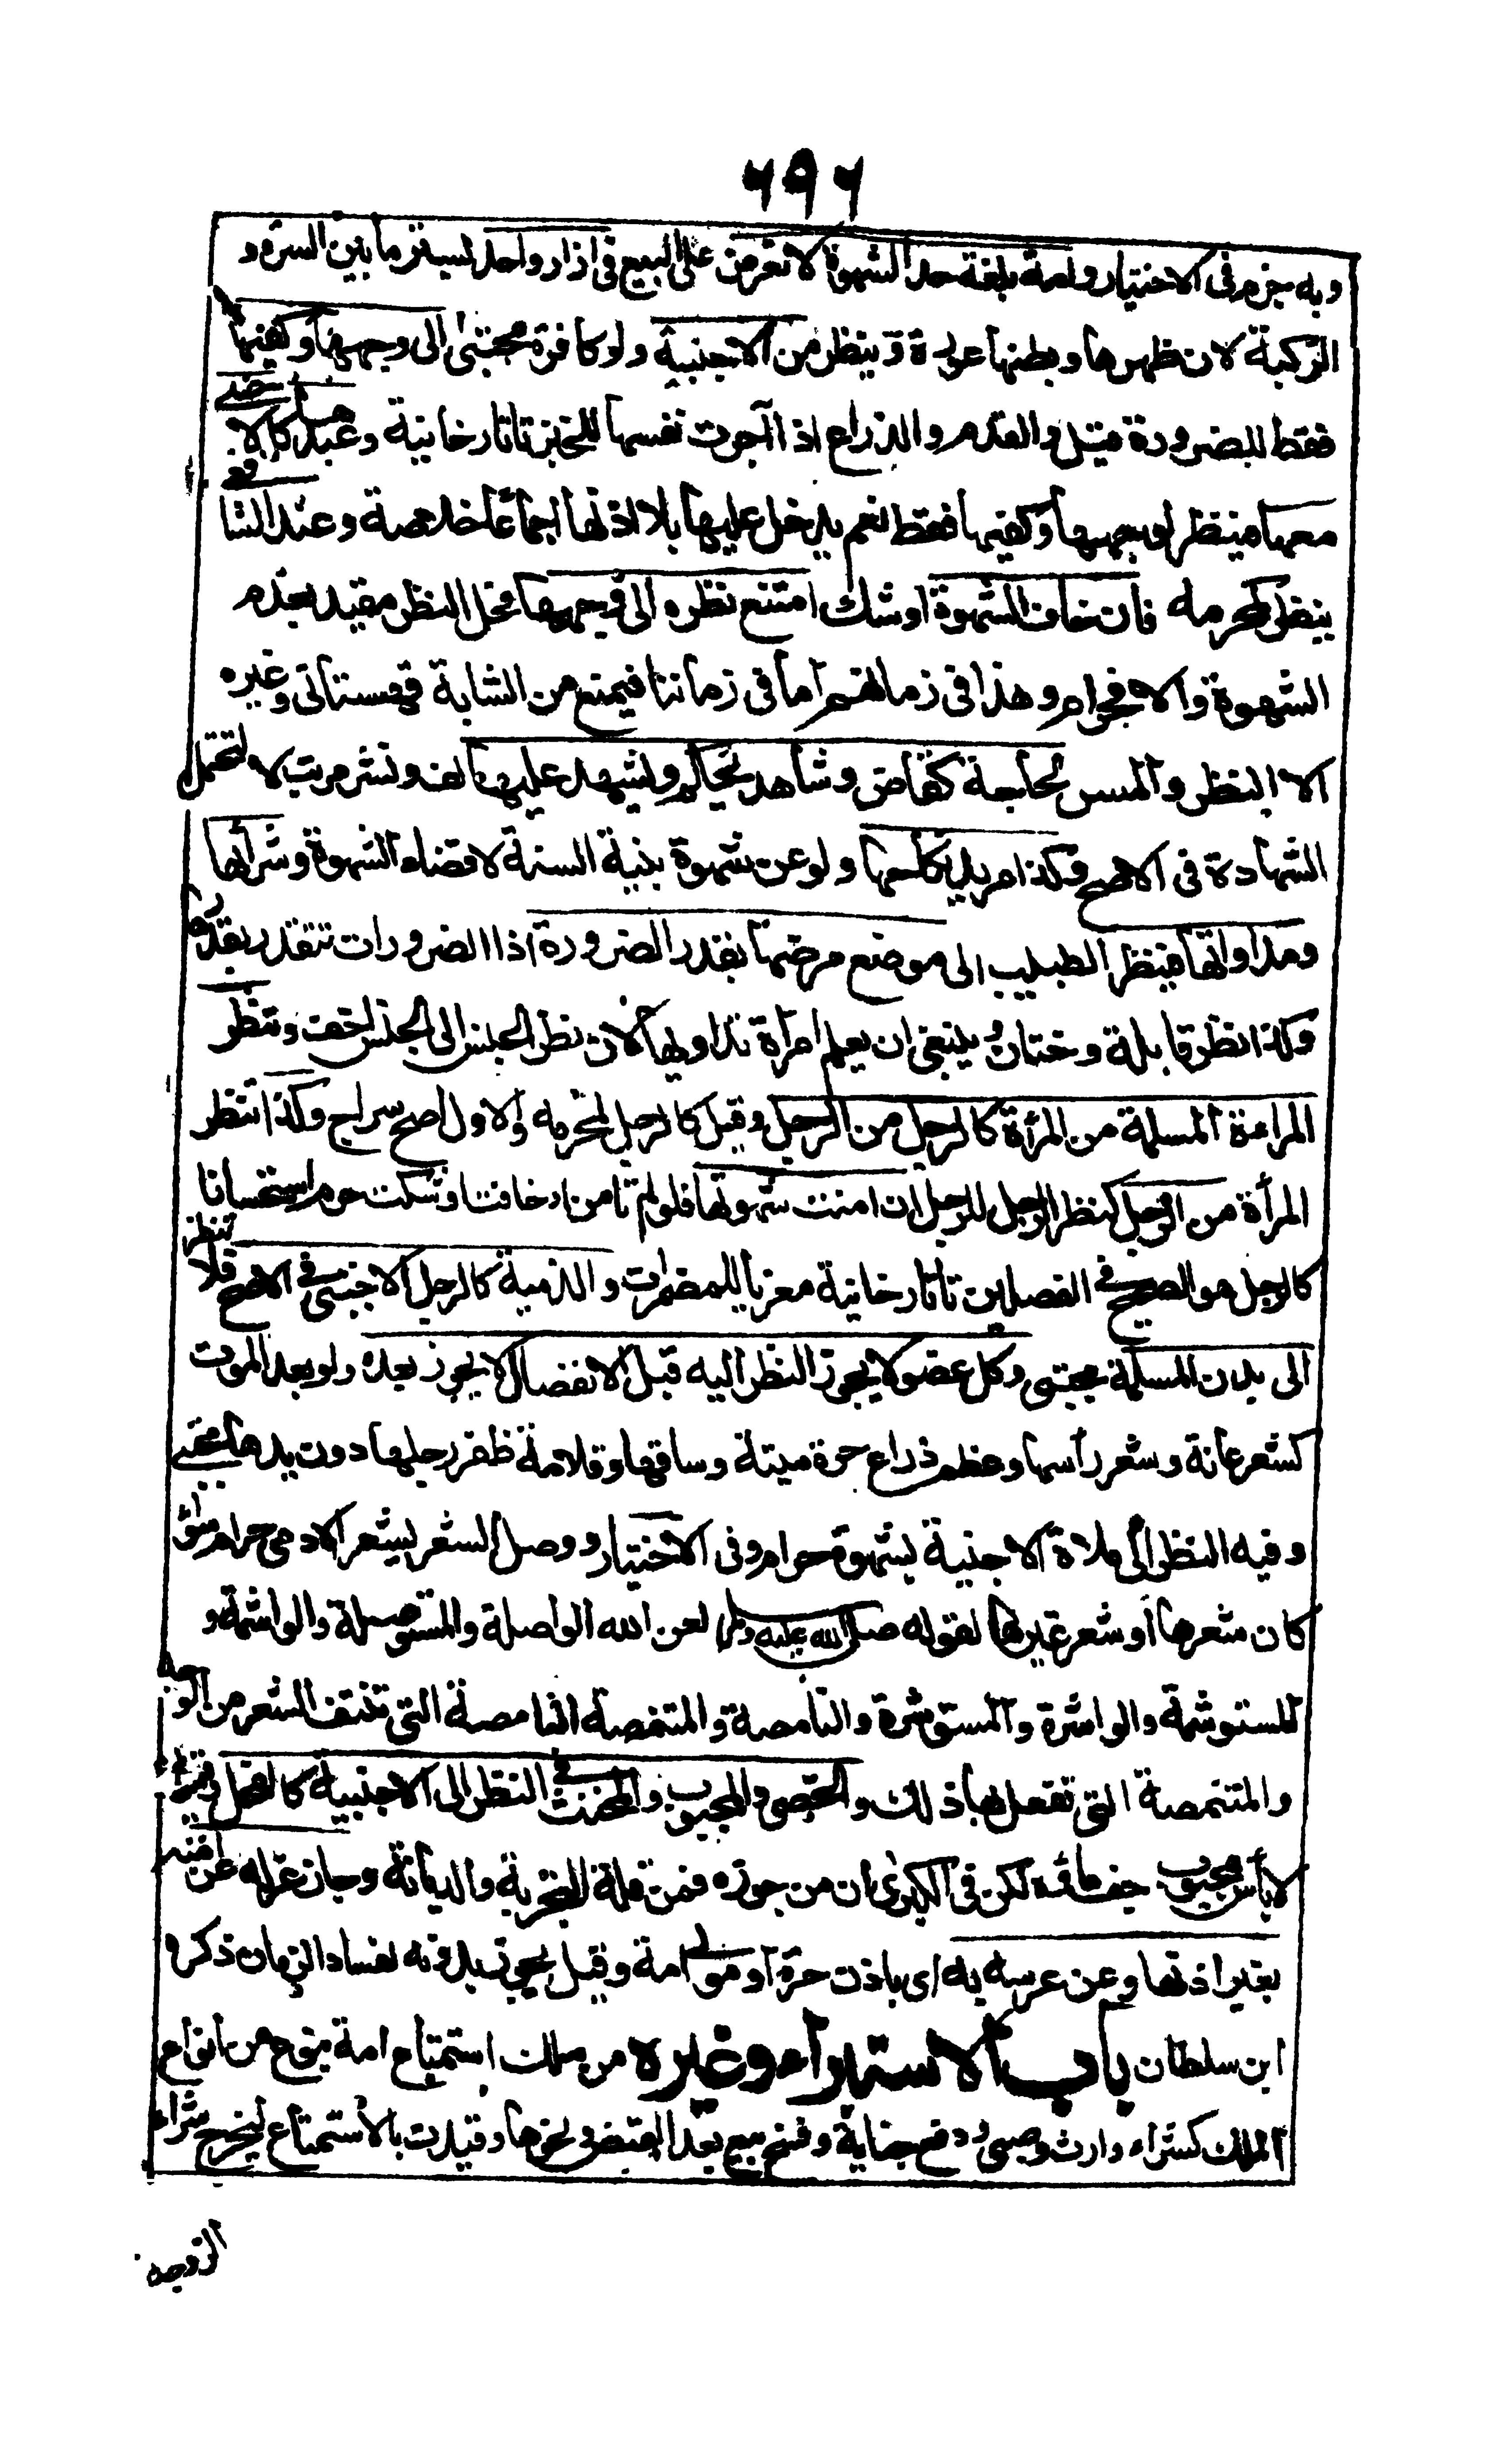 ٦٩٦
وبه جزم في الاختيار وامة بلغة حد الشهوة لا تعرض على البيع في ازار واحد لستر ما بين السرة و
الركبة لان ظهرها وبطنها عورة و ينظر من الاجنبية ولو كافرة مجتبى الى وجهها وكفيها
فقط للضرورة قيل والقدم والذراع اذا آجرت نفسها للخبز تاتارخانية وعبدها كالاجنبي
معها فينظر لوجهها وكفيها فقط نعم يدخل عليها بلا اذنها اجماعا خلاصة وعند الشافعي
ينظر كمحرمه فان خاف الشهوة اوشك امتنع نظره الى وجهها فحل النظر مقيد بعدم
الشهوة والا فحرام وهذا في زمانهم اما في زماننا فيمنع من الشابة قهستاني وغيره
الا النظر والمس لحاجة كقاض وشاهد يحكم ويشهد عليها لف ونشر مرتب لا لتحمل
الشهادة في الاصح وكذا مريد نكاحها ولو عن شهوة بنية السنة لا قضاء الشهوة وشرائها
ومداواتها فينظر الطبيب الى موضع مرضها بقدر الضرورة اذا الضرورات تتقدر بقدرها
وكذا نظر قابلة وختان وينبغي ان يعلم امرأة تداويها لان نظر الجنس الى الجنس اخف وتنظر
المراءة المسلمة من المرأة كالرجل من الرجل وقيل كالرجل لمحرمه والاول اصح سراج وكذا تنظر
المرأة من الرجل كنظر الرجل للرجل ان امنت شهوتها فلو لم تامن او خافت اوشكت حرم استحسانا
كالرجل هو الصحيح في الفصلين تاتارخانية معزيا للمضمرات والذمية كالرجل الاجنبي في الاصح فلا تنظر
الى بدن المسلمة مجتبى وكل عضو لا يجوز النظر اليه قبل الانفصال لا يجوز بعده ولو بعد الموت
كشعر عانة وشعر رأسها وعظم ذراع حرة ميتة وساقها وقلامة ظفر رجلها دون يدها مجتبى
وفيه النظر الى ملاءة الاجنبية بشهوة حرام وفي الاختيار ووصل الشعر بشعر الادمي حرام سواء
كان شعرها أو شعر غيرها لقوله صلى الله عليه وسلم لعن الله الواصلة والمستوصلة والواشمة و
المستوشمة والواشرة والمستوشرة والنامصة والمتنمصة النامصة التي تنتف الشعر من الوجه
والمتنمصة التي تفعل بها ذلك والخصي والمجبوب والمخنث في النظر الى الاجنبية كالفحل وقيل
لا بأس بمجبوب جف ماؤه لكن في الكبرى ان من جوزه فمن قلة التجربة والديانة وجاز عزله عن امته
بغير اذنها وعن عرسه به اى باذن حرة او مولى امة وقيل يجوز بدونه لفساد الزمان ذكره
ابن سلطان باب الاستبراء وغيره من ملك استمتاع امة بنوع من انواع
الملك كشراء وارث وصبى ودفع جناية وفسخ بيع بعد القبض ونحوها وقيدت بالاستمتاع ليخرج شراء
الزوجة